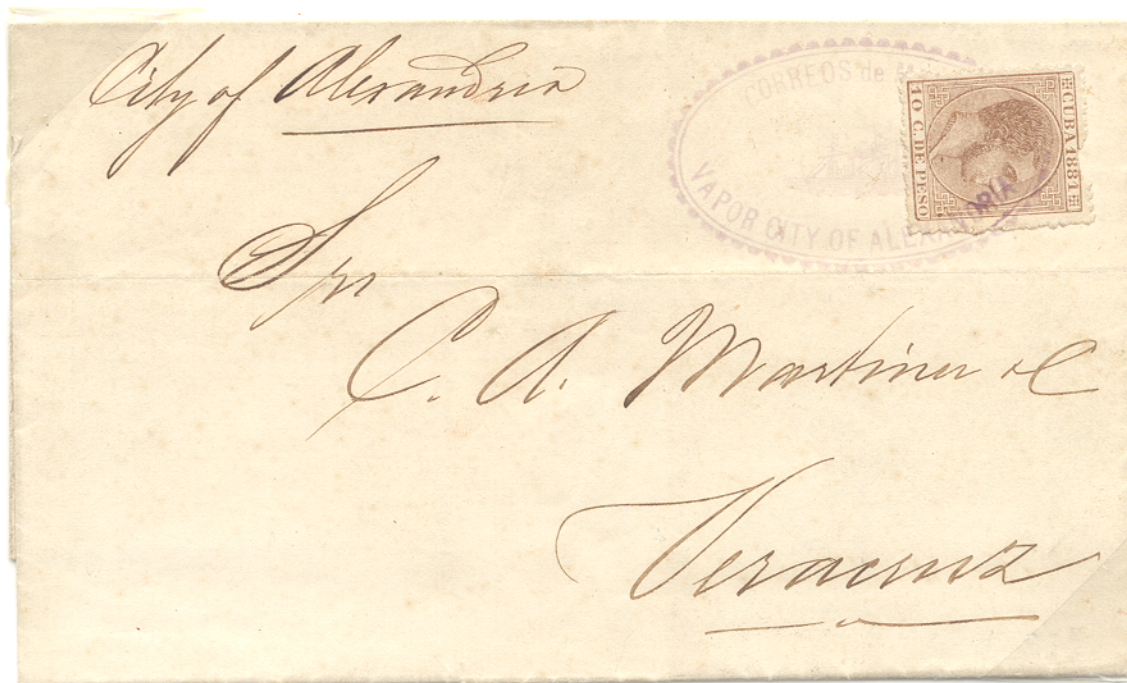 City of Alexandria
CORREOS de
VAPOR CITY OF ALEXANDRIA
CUBA 1881
10 C. DE PESO
C. A. Martinez
Veracruz